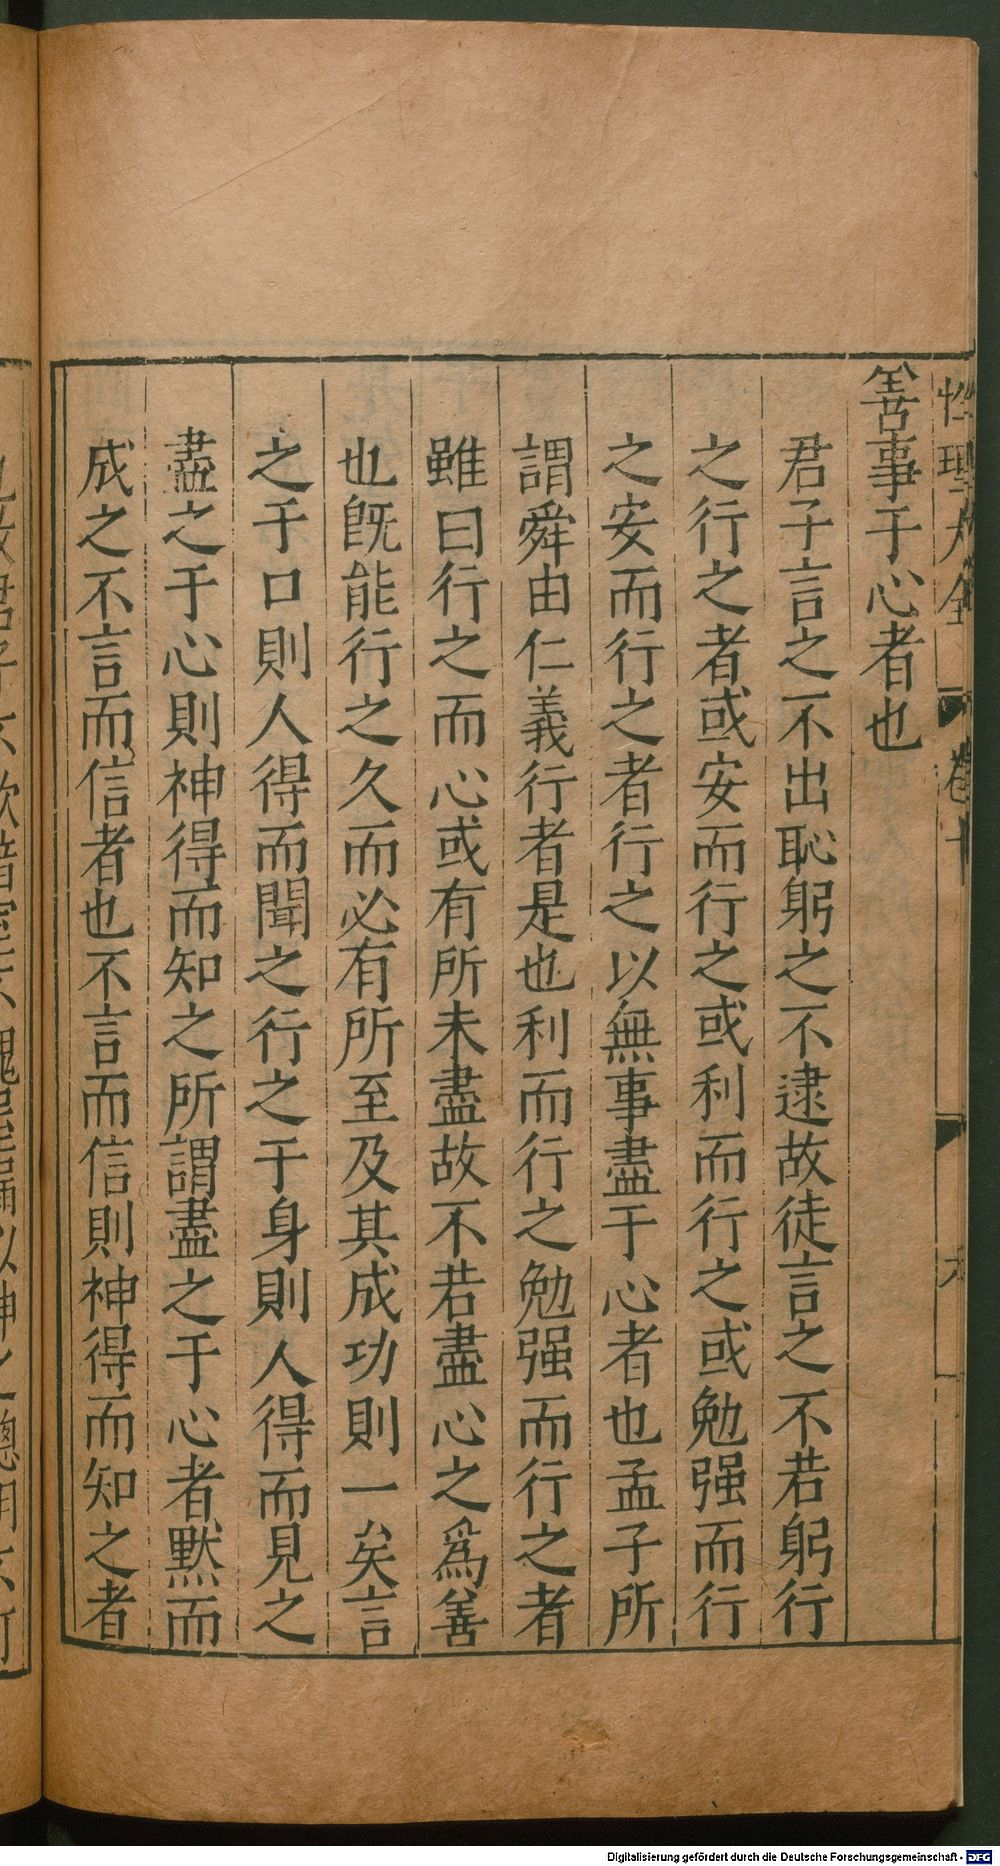 性理大全 卷十
善事于心者也
君子言之不出恥躬之不逮故徒言之不若躬行
之行之者或安而行之或利而行之或勉强而行
之安而行之者行之以無事盡于心者也孟子所
謂舜由仁義行者是也利而行之勉强而行之者
雖曰行之而心或有所未盡故不若盡心之爲善
也旣能行之久而必有所至及其成功則一矣言
之于口則人得而聞之行之于身則人得而見之
盡之于心則神得而知之所謂盡之于心者默而
成之不言而信者也不言而信則神得而知之者
Digitalisierung gefördert durch die Deutsche Forschungsgemeinschaft - DFG